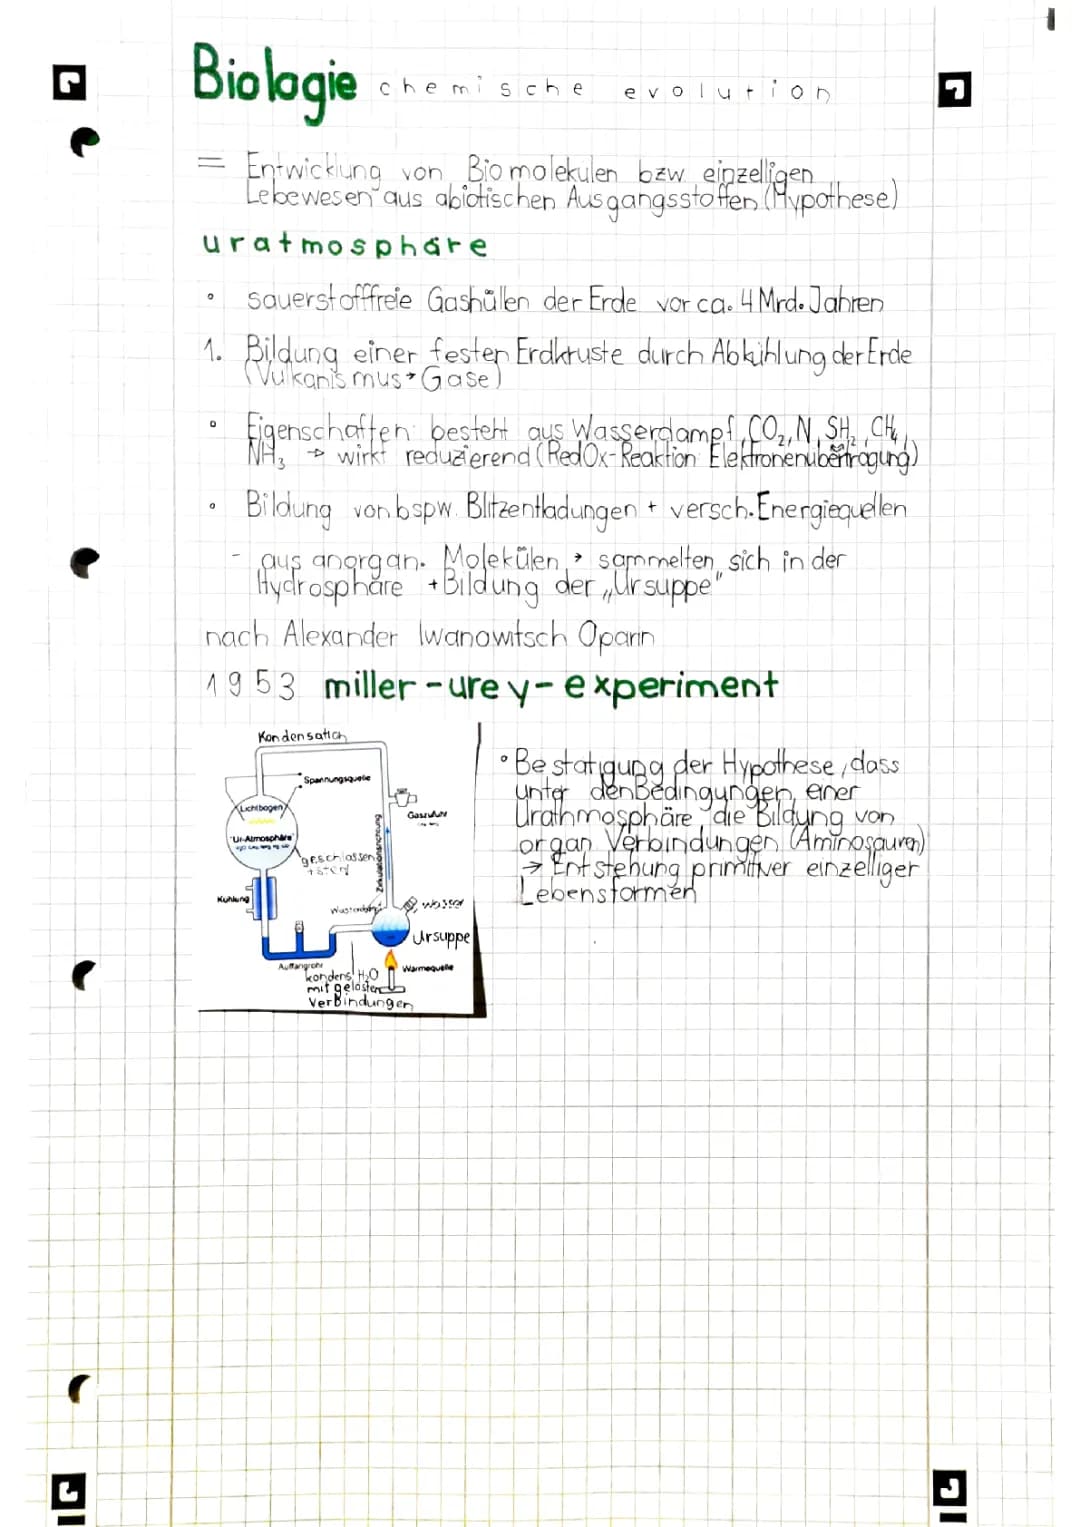 Biologie chemische evolution
= Entwicklung von Biomolekulen bzw einzelligen
Lebewesen aus abiotischen Ausgangsstoffen (Hypothese)
uratmosphäre
° sauerstofffreie Gashüllen der Erde vor ca. 4 Mrd. Jahren
1. Bildung einer festen Erdkruste durch Abkühlung der Erde
(Vulkanismus → Gase)
° Eigenschaften: besteht aus Wasserdampf, CO₂, N, SH₂, CH₄,
NH₃ → wirkt reduzierend (RedOx-Reaktion Elektronenübertragung)
° Bildung von bspw. Blitzentladungen + versch. Energiequellen
- aus anorgan. Molekülen → sammelten sich in der
Hydrosphäre + Bildung der „Ursuppe"
nach Alexander Iwanowitsch Oparin
1953 miller-urey-experiment
Kondensation
Spannungsquelle
Lichtbogen
Gaszufuhr
"Ur-Atmosphäre"
Zirkulationsrichtung
geschlossen
Kühlung
Wasser
Ursuppe
Auffangrohr
Wärmequelle
kondens. H₂O
mit gelösten
Verbindungen
° Bestätigung der Hypothese, dass
unter den Bedingungen einer
Urathmosphäre die Bildung von
organ Verbindungen (Aminosäuren)
→ Entstehung primitiver einzelliger
Lebensformen